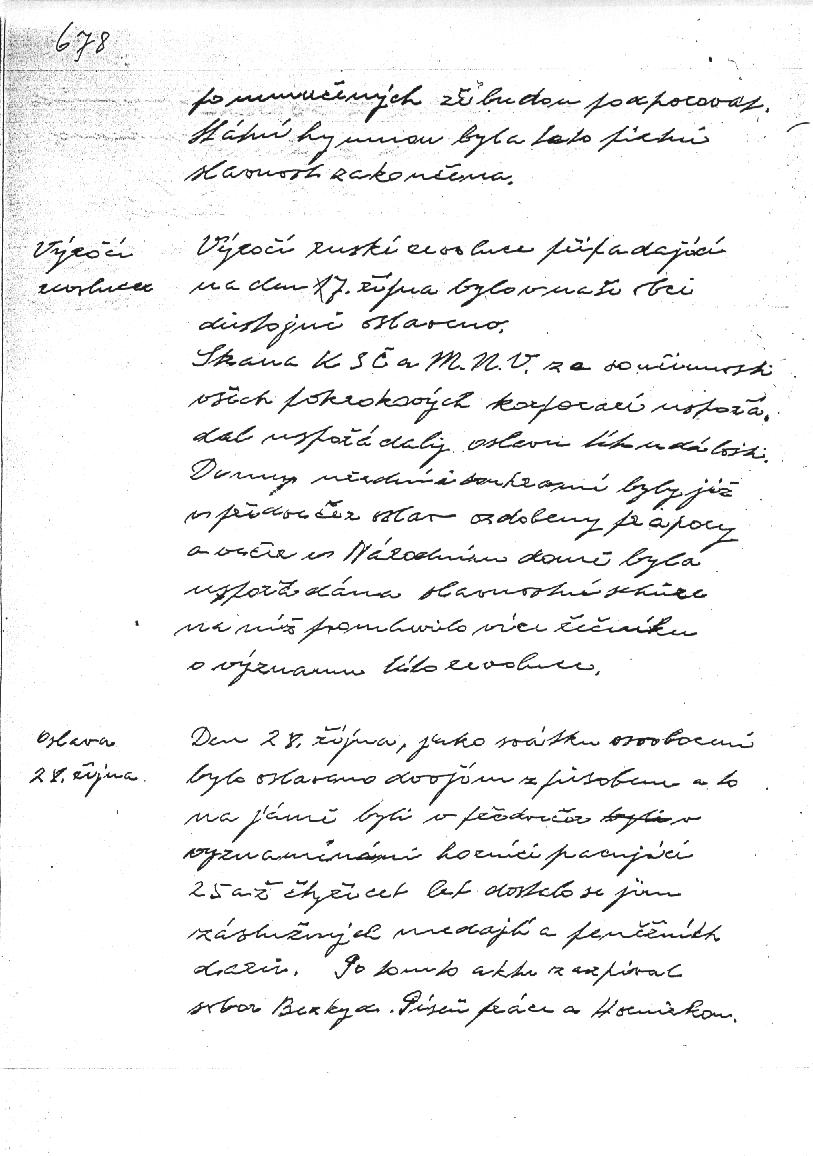 678
po umučených zří budou podporovat.
Státní hymnou byla tato pietní
slavnost zakončena.
Výročí
revoluce
Výročí ruské revoluce připadající
na den 17. října bylo v naši obci
důstojně oslaveno.
Strana KSČ a M.N.V. za součinnosti
všech pokrokových korporací uspořá,
dal uspořádaly oslavu této události.
Domy úřední i soukromé byly již
v předvečer oslav ozdobeny prapory
a večer v Národním domě byla
uspořádána slavnostní schůze
na níž promluvilo více řečníku
o významu této revoluce.
Oslava
28. října.
Den 28. října, jako svátku osvobození
bylo oslaveno dvojím způsobem a to
na jámě byli v předvečer byli v
vyznamínáni horníci pracující
25 až čtyřicet let dostalo se jim
záslužných medajlí a peněžních
darů. Po tomto aktu zazpíval
sbor Bezkyd. Píseň práce a Hornickou.